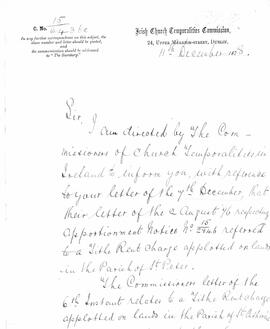 15
C. No.
Irish Church Temporalities Commission,
In any further correspondence on this subject, the
above number and letter should be quoted, and
the communication should be addressed
to "The Secretary."
24, Upper Merrion-street, Dublin,
11th December 1878.
Sir,
I am directed by The Com-
missioners of Church Temporalities in
Ireland to inform you, with reference
to your letter of the 7th December, that
their letter of the 2 August 76 respecting
apportionment Notice No 15 referred
to a Tithe Rent Charge applotted on lands
in the Parish of St Peter.
The Commissioners letter of the
6th Instant relates to a Tithe Rentcharge
applotted on lands in the Parish of St